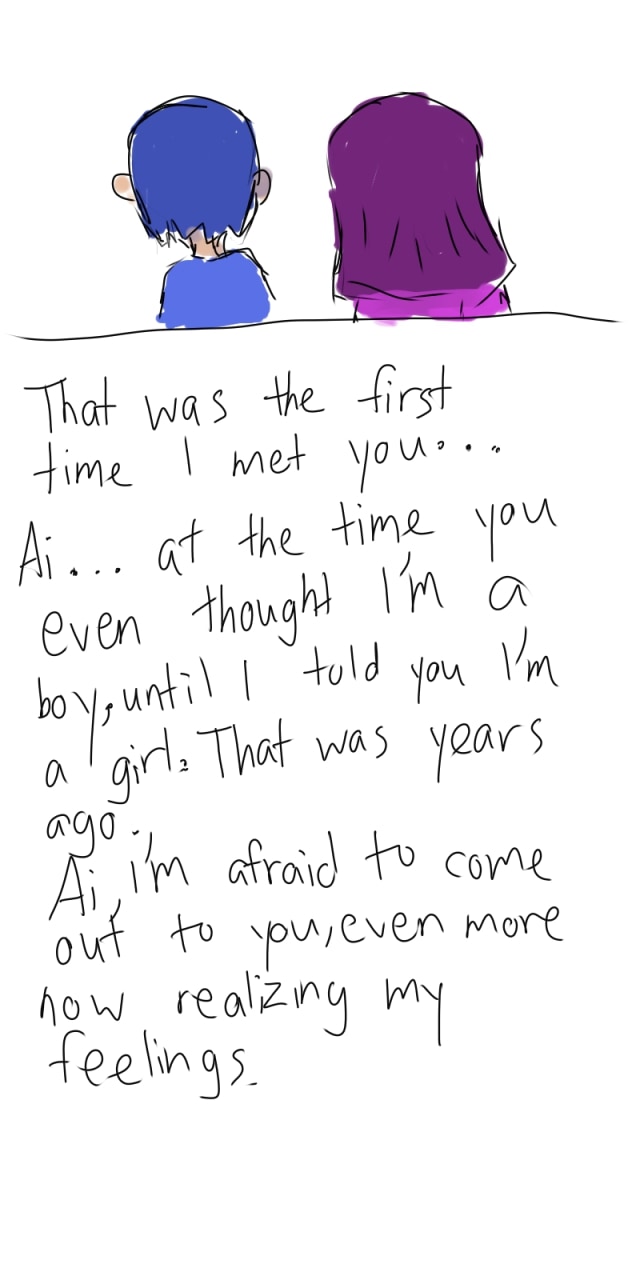 That was the first
time I met you...
Ai... at the time you
even thought I'm a
boy, until I told you I'm
a girl. That was years
ago.
Ai, i'm afraid to come
out to you, even more
now realizing my
feelings.